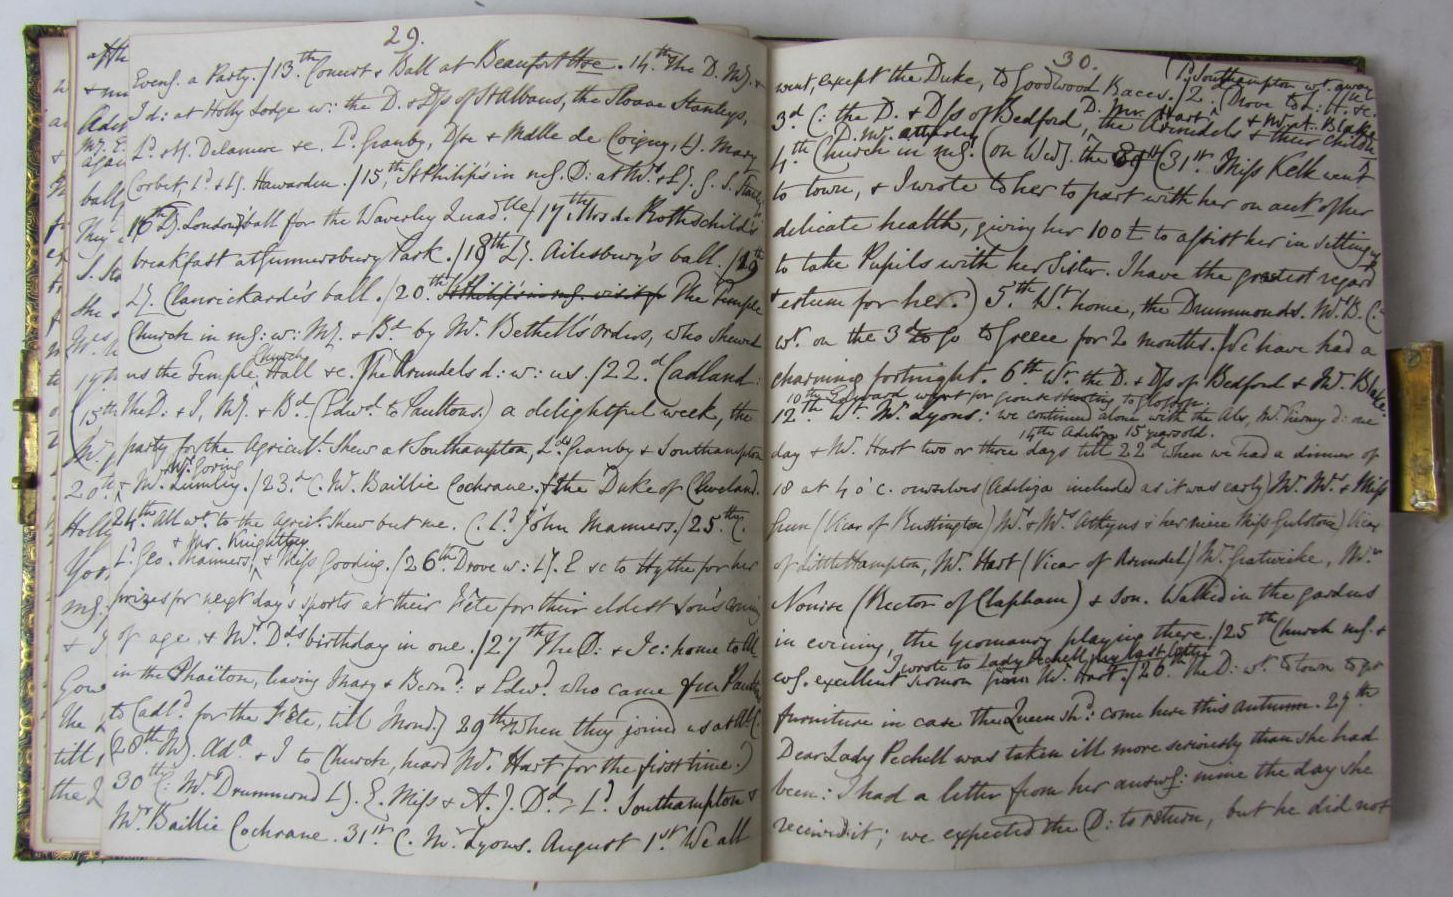 29.
Eveng. a Party. / 13th Concert & Ball at Beaufort Hse. 14th The D. My. &
I d: at Holly Lodge w: the D. & Dss of St Albans, the Sloane Stanleys,
Ld & Ly. Delamere &c. Ld Granby, Dsse & Mdlle de Coigny, Ly. Mary
Corbet, Ld & Ly. Hawarden. / 15th St Philip's in mg. D: at Mr & Ly. G. S. Stanley's.
16th Ly. London ball for the Waverley Quadlle / 17th Mrs de Rothschild's
breakfast at Gunnersbury Park. / 18th Ly. Ailesbury's ball. / 19th
Ly. Clanrickarde's ball. / 20th St Philip's in mg. visit fr The Temple
Church in mg: w: My. & Bd by Mr. Bethell's orders, who shewed
us the Temple Church, Hall &c. The Arundels d: w: us. / 22d Cadland:
The D: & I, My. & Bd. (Edwd. to Paultons.) a delightful week, the
party for the Agricult. Shew at Southampton, Lds Granby & Southampton
& Mr. Lumley. Mr. Goring / 23d C. Mr. Baillie Cochrane, & the Duke of Cleveland.
24th All wt. to the Agricl. Shew but me. C. Ld John Manners. / 25th C.
Ld Geo. Manners, & Mr. Knightley & Miss Gooding. / 26th Drove w: Ly. E &c to Hythe for her
prizes for next day's sports at their Fête for their eldest son's coming
of age, & Mr. Dd's birthday in one. / 27th The D: & I c: home to Al
in the Phaëton, leaving Mary & Bernd: & Edwd. who came fm Paultons
to Cadld. for the Fête, till Mondy 29th when they joined us at Al C.
(28th My. Ada & I to Church, heard Mr. Hart for the first time.)
30th C: Mr. Drummond Ly. E. Miss & A. J. Dd Ld Southampton &
Mr Baillie Cochrane. 31st C. Mr Lyons. August 1st. We all
30.
went, except the Duke, to Goodwood Races. / 2d (Ld Southampton wt. away Drove to L: H. &c.
3d C: the D. & Dss of Bedford, D. Mr. Hart the Arundels & Mr. A. Blake & their childn
4th Church in mg. D. Mr. Atherley (on Wedy. the 31st Miss Kelk went
to town, & I wrote to her to part with her on acct of her
delicate health, giving her 100£ to assist her in setting up
to take Pupils with her Sister. I have the greatest regard
& esteem for her.) 5th Wt. home, the Drummonds. Mr B. C.
wt. on the 3d to go to Greece for 2 months. / We have had a
charming fortnight. 6th Wt the D. & Dss of Bedford & Mr. Blake.
10th Edward went for grouse shooting to Glossop.
12th Wt Mr. Lyons: we continued alone with the Abe, Mr. Tierney d: one
14th Adeliza 15 years old.
day & Mr. Hart two or three days till 22d when we had a dinner of
18 at 4 o'c. ourselves (Adeliza included as it was early) Mr. Mrs. & Miss
Green (Vicar of Rustington) Mr & Mrs Atkyns & her niece Miss Gulston) Vicar
of Little Hampton, Mr. Hart (Vicar of Arundel) Mr. Gratwicke, Mr.
Nourse (Rector of Clapham) & Son. Walked in the gardens
in evening, the Yeomanry playing there. / 25th Church mg. &
evg. excellent sermon from Mr. Hart. I wrote to Lady Pechell, my last letter / 26th The D: wt. to town to get
furniture in case the Queen shd: come here this autumn. 27th
Dear Lady Pechell was taken ill more seriously than she had
been: I had a letter from her answg: mine the day she
received it; we expected the D: to return, but he did not